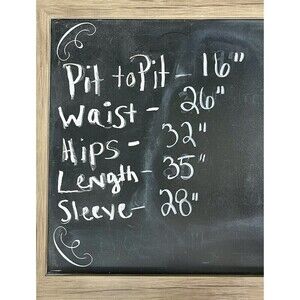 Pit to Pit - 16"
Waist - 26"
Hips - 32"
Length - 35"
Sleeve - 28"